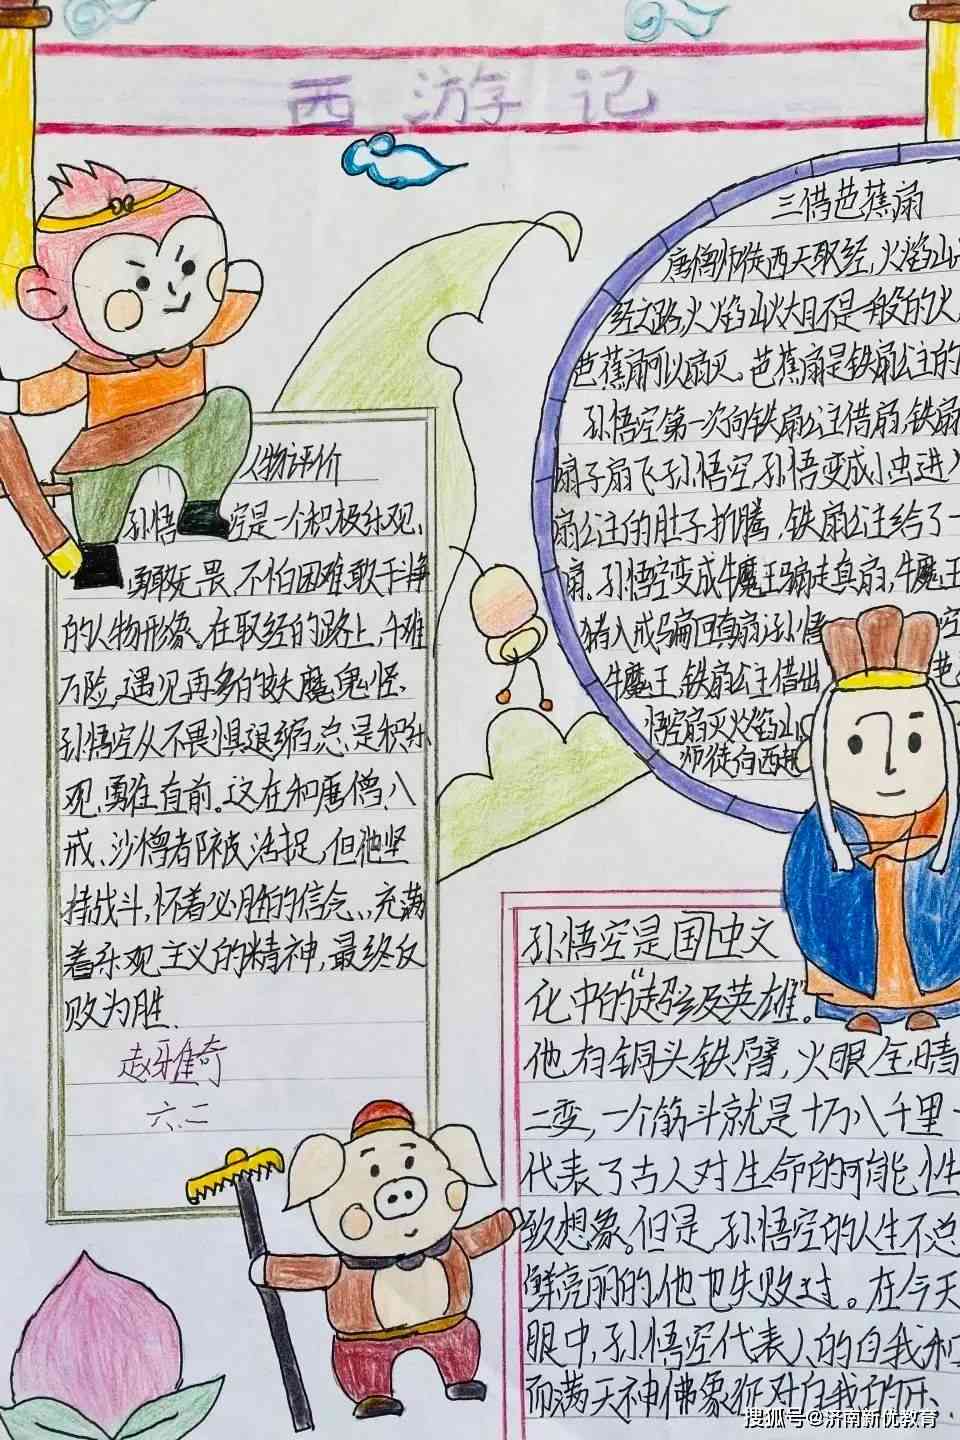 西游记
人物评价
孙悟空是一个积极乐观、
勇敢无畏、不怕困难、敢于斗争
的人物形象。在取经的路上,千难
万险,遇见再多的妖魔鬼怪、
孙悟空从不畏惧退缩,总是积极乐
观、勇往直前。这在和唐僧、八
戒、沙僧都被活捉,但他坚
持战斗,怀着必胜的信念、,充满
着乐观主义的精神,最终反
败为胜.
赵雅奇
六、二
三借芭蕉扇
唐僧师徒西天取经,火焰山
经之路,火焰山火大且不是一般的火,
芭蕉扇可以扇灭。芭蕉扇是铁扇公主的
孙悟空第一次向铁扇公主借扇,铁扇
扇子扇飞孙悟空,孙悟变成小虫进入
扇公主的肚子折腾,铁扇公主给了一
扇.孙悟空变成牛魔王骗走真扇,牛魔王
猪八戒骗回真扇,孙悟空
牛魔王,铁扇公主借出芭
悟空扇灭火焰山
师徒向西
孙悟空是国中文
化中的“超级英雄”。
他有铜头铁臂,火眼金睛
二变,一个筋斗就是十万八千里
代表了古人对生命的可能性
致想象。但是,孙悟空的人生不总
鲜亮丽的,他也失败过。在今天
眼中,孙悟空代表人的自我和
而满天神佛象征对自我的
搜狐号@济南新优教育